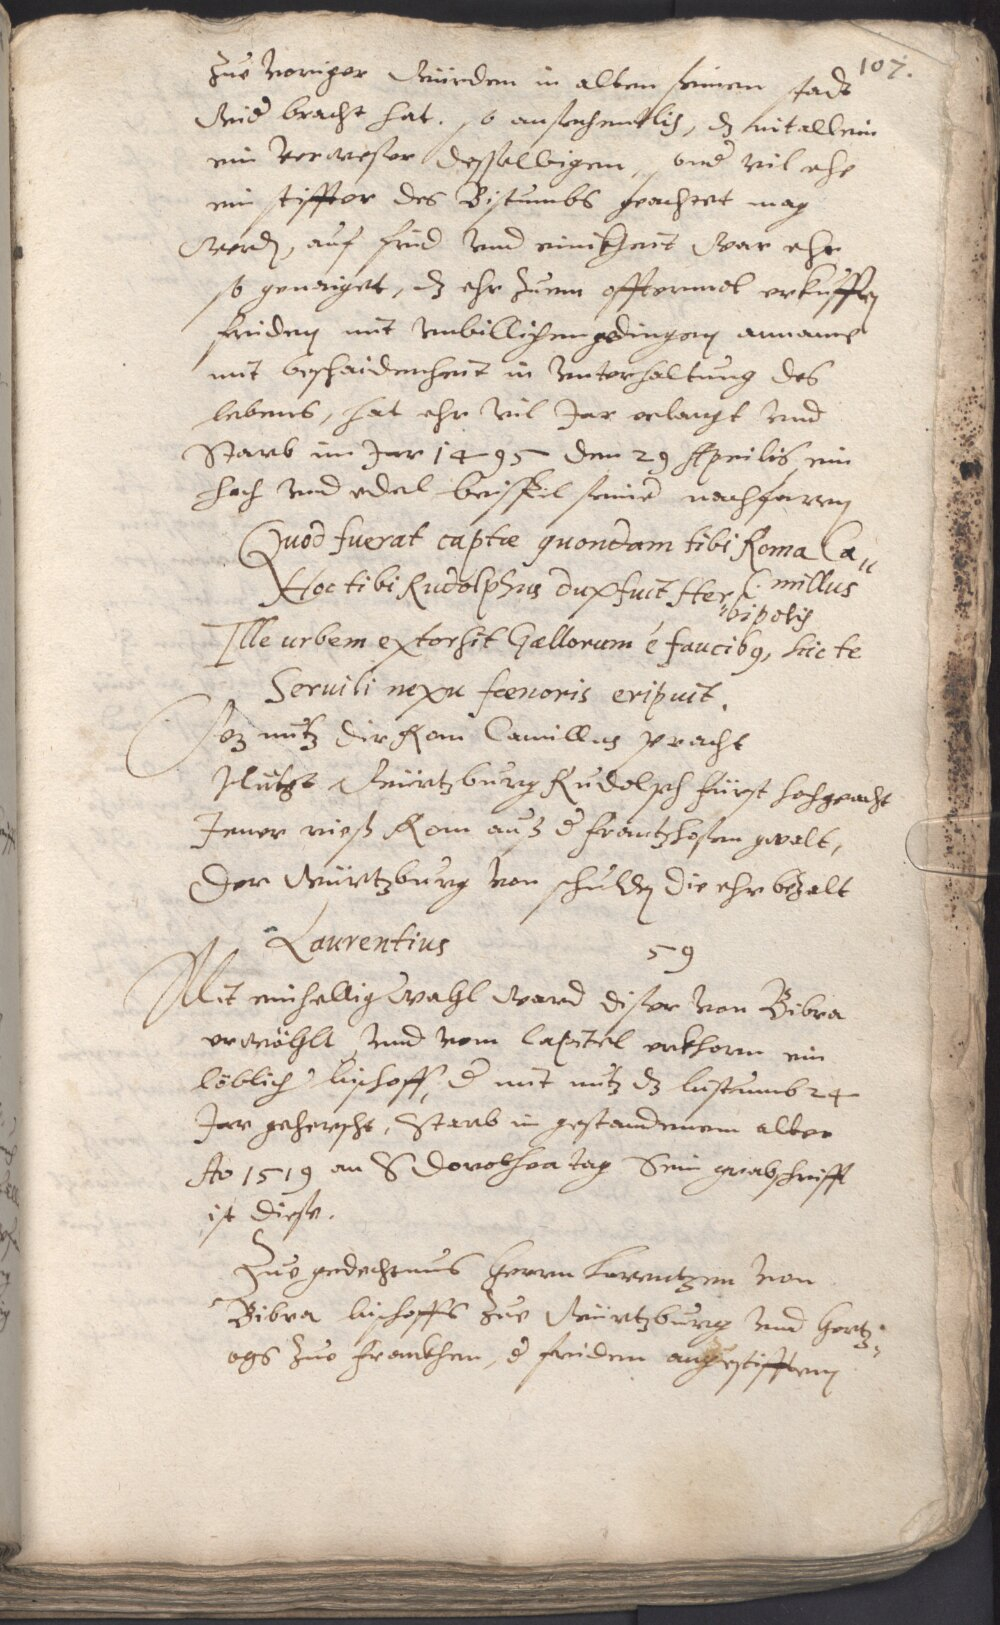 107.
Zue voriger würdem in alten seinen stadt
wid bracht hat. so ansehentlich, dz nit allein
ein verweser desselbigen, sond vil ehe
ein stiffter des Bistumbs geachtet mag
werdē, auf frid vnd einikheit war ehr
so geneiget, dz ehr zuem offtermol erkhufftē
fridens mit vnbillichen gedingen anname
mit beschaidenheit in vnterhaltung des
lebens, hat ehr vil Jar erlangt vnd
Starb im Jar 1495 den 29 Aprilis ein
hoch vnd edel beispil seine nachfaren
Quod fuerat captæ quondam tibi Roma Ca=
millus
Hoc tibi Rudolphus dux fuit Her
=bipolis
Ille urbem extorsit Gallorum è faucib9, hic te
Seruili nexu fœnoris eripuit.
Dz nutz dir Rom Camillus gracht
Nutzt Würtzburg Rudolph fürst hochgeacht
Jener riess Rom auss d frantzhosen gwalt,
Der Würtzburg von schulden die ehr bezalt
Laurentius 59
Mit einhellig wahl ward diser von Bibra
erwöhlt vnd vom Capitel erkhorn ein
löblich bischoff, d mit nutz dz bistumb 24
Jar geherscht, Starb in gestandenem alter
Ao 1519 an S Dorothea tag Sein grabschrifft
ist diese.
Zue gedechtnus Herrn Lorentzen von
Bibra bischoffs zue Würtzburg vnd Hertz=
ogs zue frankhen, d friden angestifften